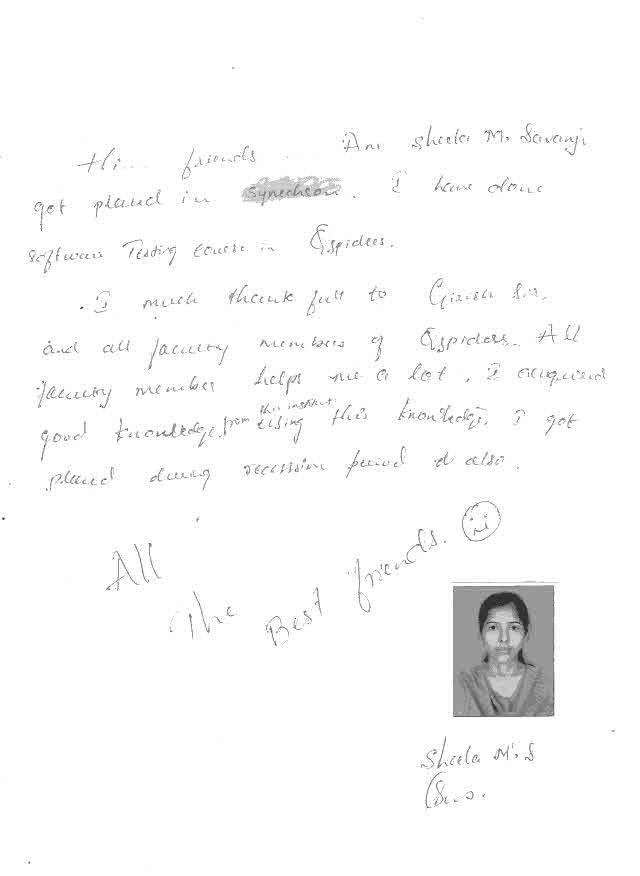 Hi... friends ... Am Sheela M. Savanji
got placed in Synechson. I have done
software Testing course in Qspiders.
. I much thank full to Girish Sir.
and all faculty members of Qspiders. All
faculty member helps me a lot. I acuquired
good knowledge, from this institut. using this knowledge, I got
placed during recession period also.
All
The Best friends.
Sheela M. S